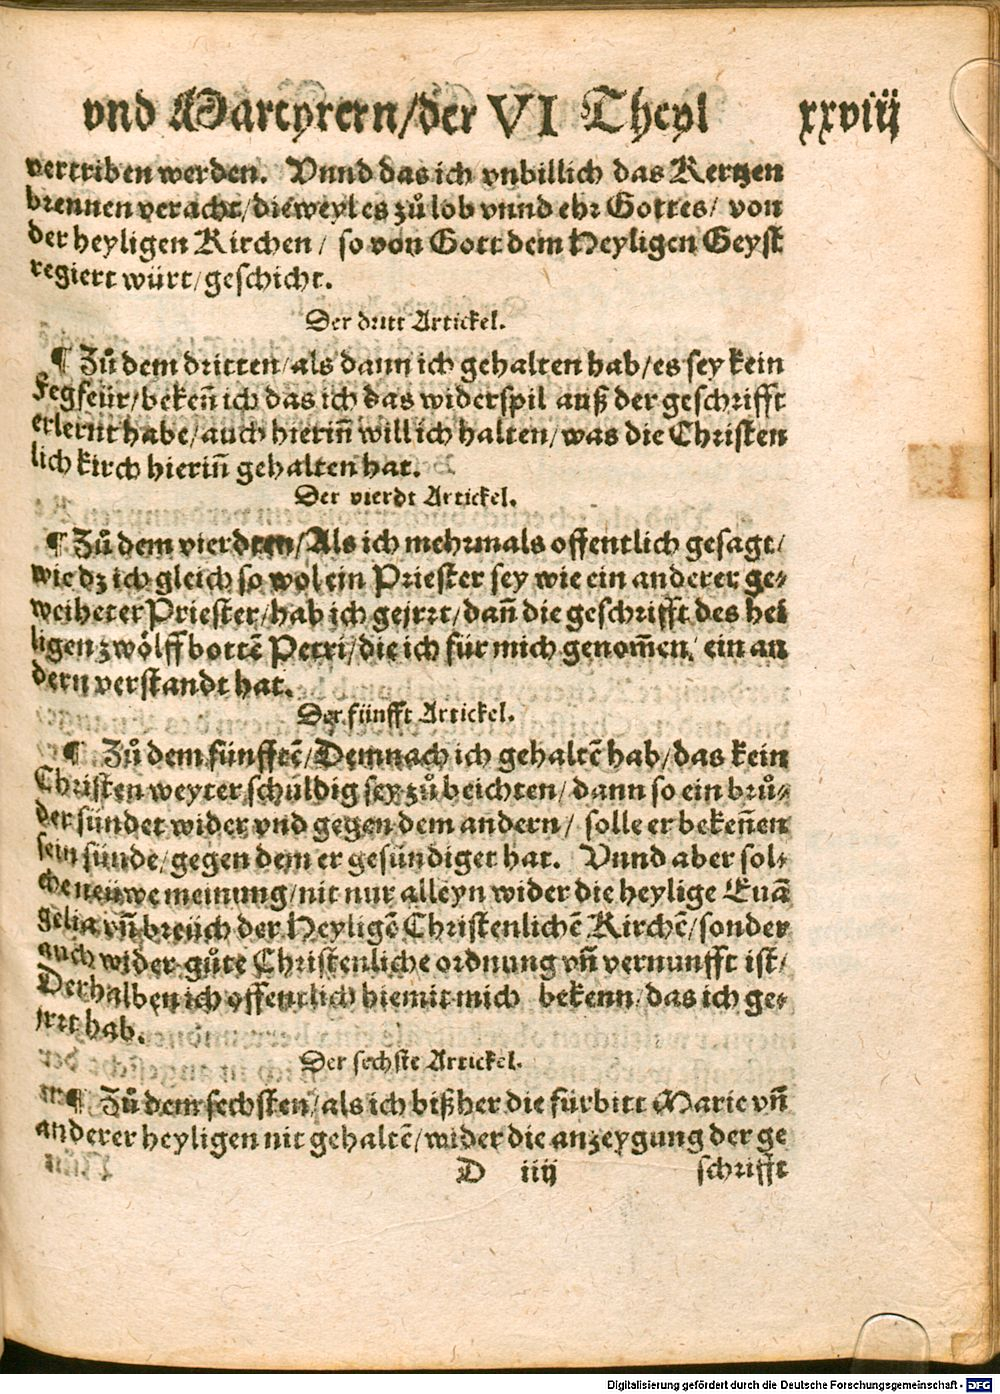 vnd Martyrern/der VI Theyl xxviij
vertriben werden. Vnnd das ich vnbillich das Kertzen
brennen veracht/dieweyl es zů lob vnnd ehr Gottes/ von
der heyligen Kirchen/ so von Gott dem Heyligen Geyst
regiert würt/geschicht.
Der dritt Artickel.
¶ Zů dem dritten/als dann ich gehalten hab/es sey kein
Fegfeür/bekeñ ich das ich das widerspil auß der geschrifft
erlernt habe/auch hieriñ will ich halten/was die Christen
lich kirch hieriñ gehalten hat.
Der vierdt Artickel.
¶ Zů dem vierdten/Als ich mehrmals offentlich gesagt/
wie dz ich gleich so wol ein Priester sey wie ein anderer ge⸗
weiheter Priester/hab ich gejrrt/dañ die geschrifft des hei
ligen zwölffbottē Petri/die ich für mich genom̃en/ ein an
dern verstandt hat.
Der fünfft Artickel.
¶ Zů dem fünfftē/Demnach ich gehaltē hab/das kein
Christen weyter schuldig sey zů beichten/dann so ein brů⸗
der sündet wider vnd gegen dem andern/ solle er bekeñen
sein sünde/gegen dem er gesündiget hat. Vnnd aber sol⸗
che neüwe meinung/nit nur alleyn wider die heylige Euā
gelia vñ breüch der Heyligē Christenlichē Kirchē/sonder
auch wider gůte Christenliche ordnung vñ vernunfft ist/
Derhalben ich offentlich hiemit mich bekenn/das ich ge⸗
jrrt hab.
Der sechste Artickel.
¶ Zů dem sechsten/als ich bißher die fürbitt Marie vñ
anderer heyligen nit gehaltē/wider die anzeygung der ge
D iiij schrifft
Digitalisierung gefördert durch die Deutsche Forschungsgemeinschaft - DFG